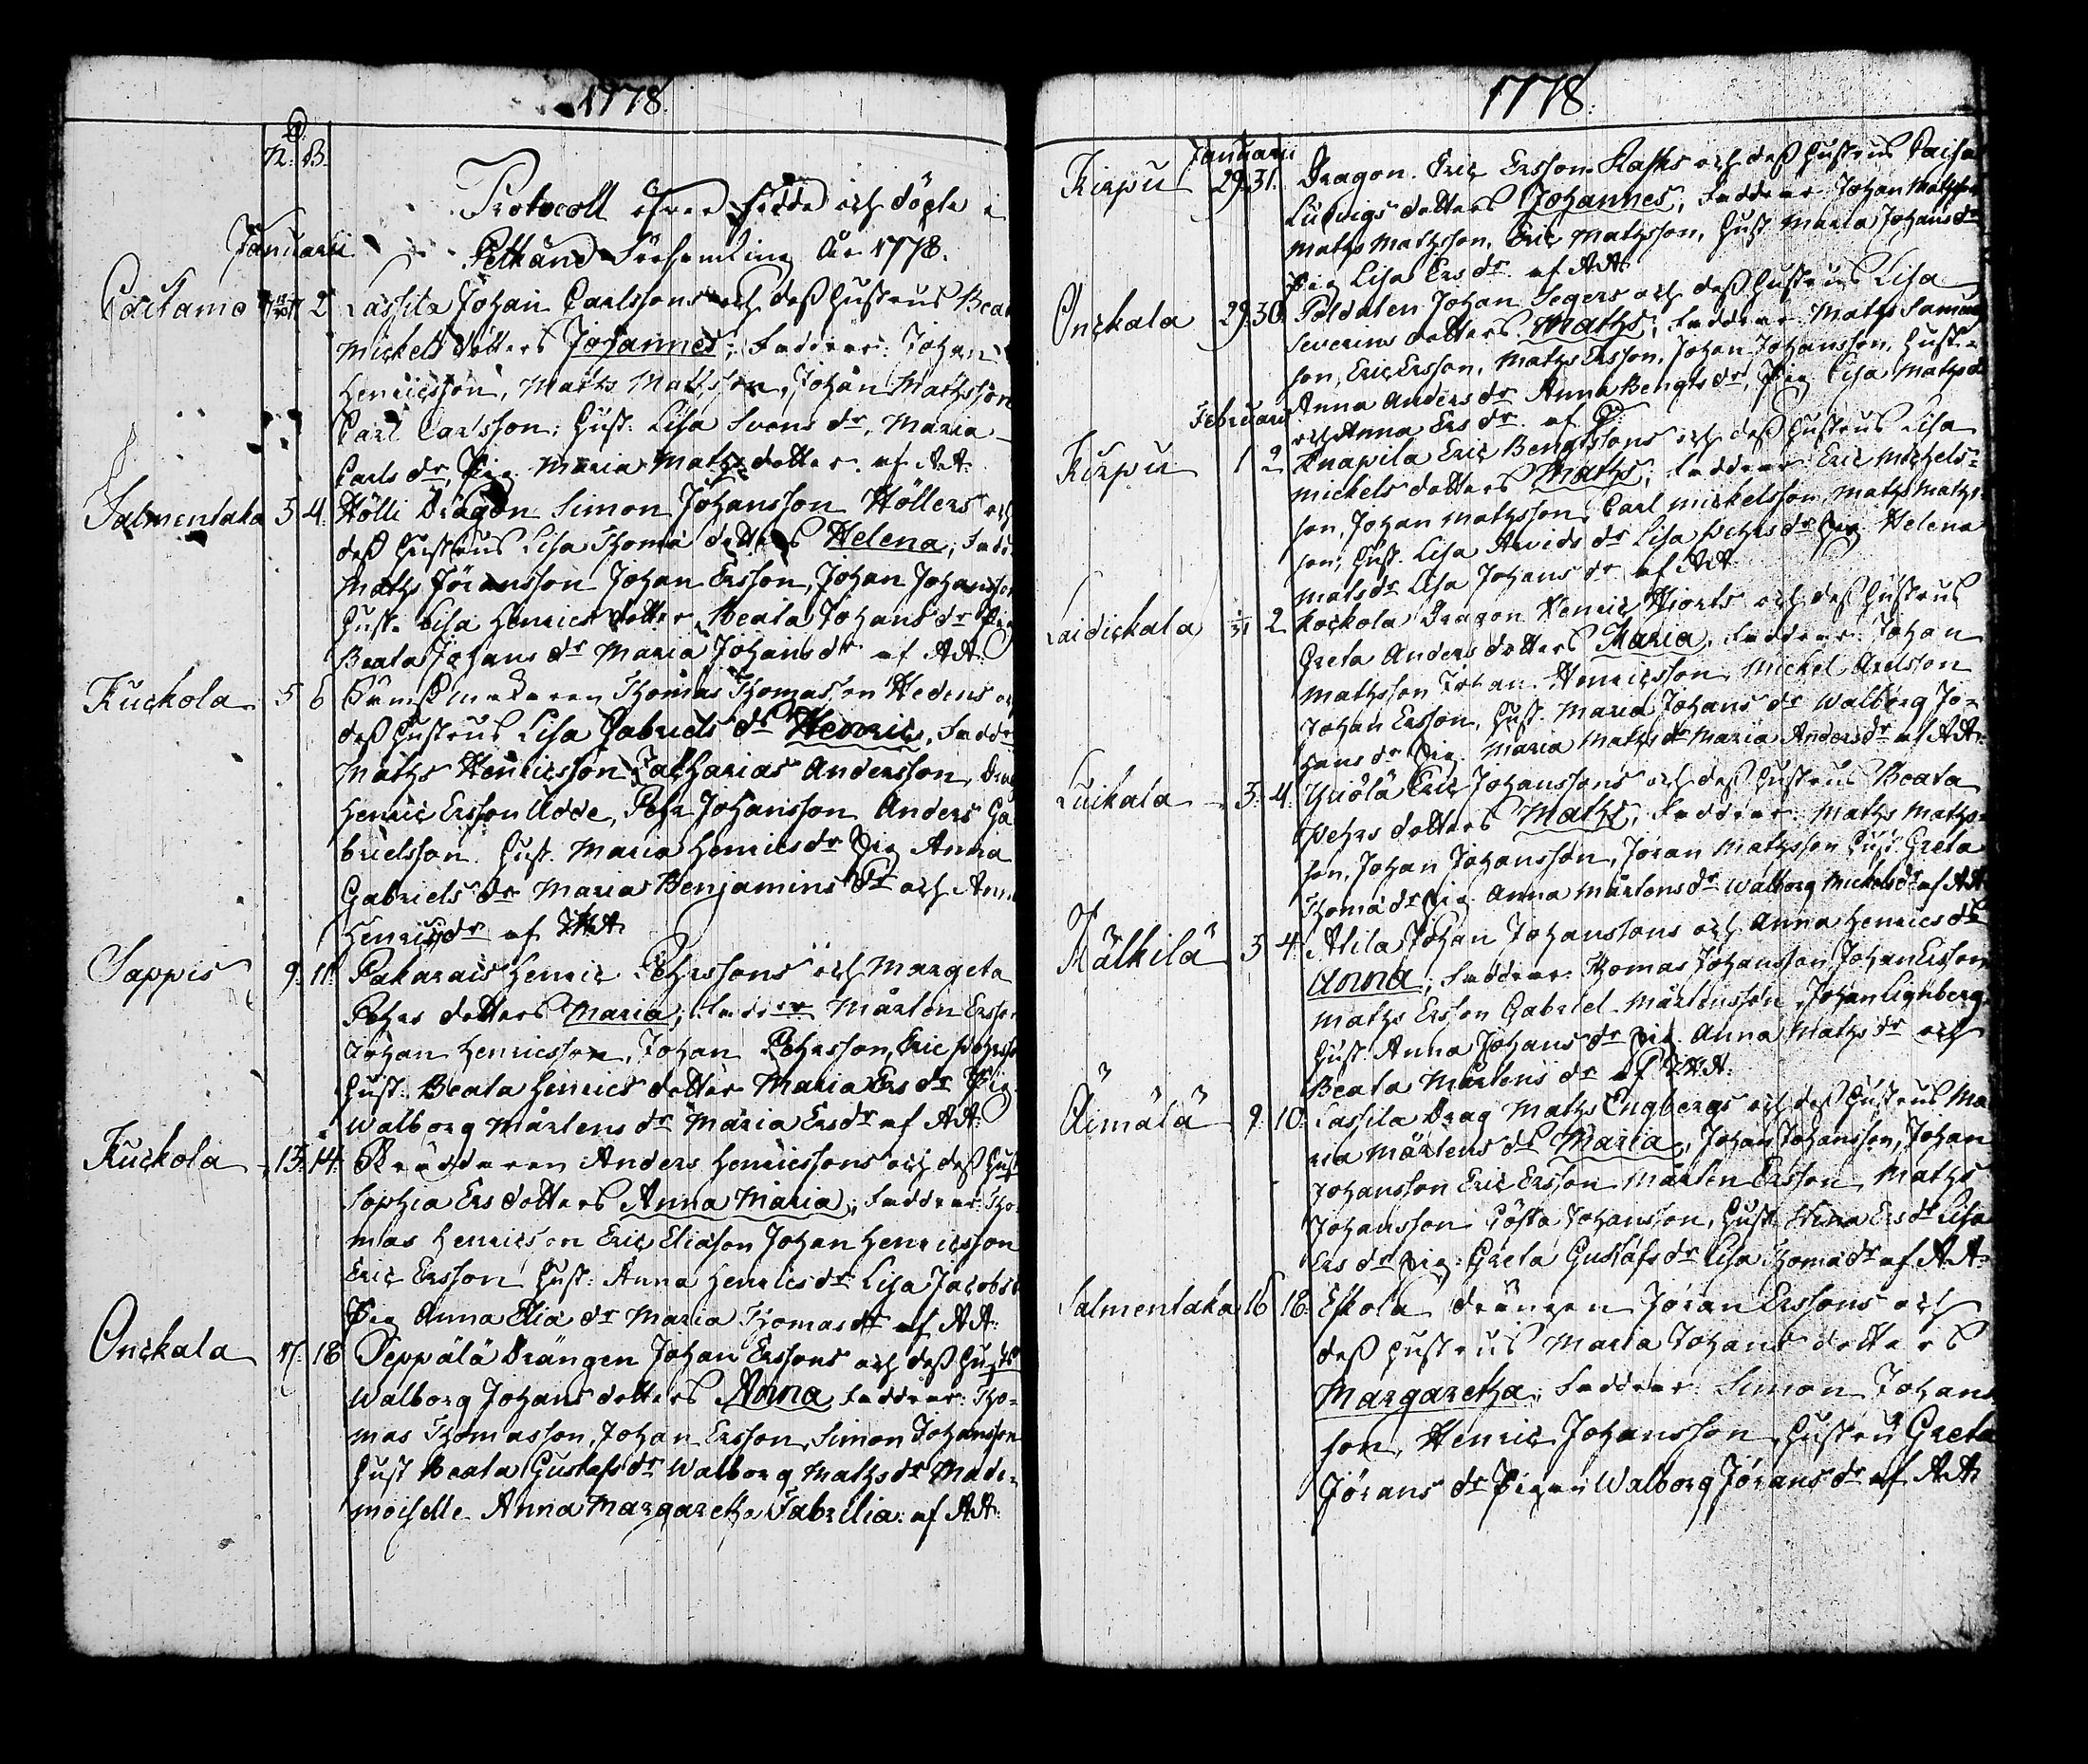 1778.
N. B.
Protocoll öfver Födde och döpte i
Januarii
Pelkäne Församling År 1778.
2 Lassila Johan Carlssons och dess hustrus Beat
Mickels dotters Johannes; Faddrar: Johan
Henricsson, Maths Mathsson, Johan Mathsson
Carl Carlsson; Hust: Lisa Svens dr, Maria
Carls dr, Pig. Maria Maths dotter. af AA.
Salmentaka 3 4. Hölli Dragon Simon Johansson Höllers och
dess hustrus Lisa Thomæ dotters Helena; Fadd.
Maths Jöransson Johan Ersson, Johan Johansson
Hust. Lisa Henrics dotter Beata Johans dr Pig
Beata Johans dr Maria Johans dr af AA.
Kuckola 5 6 Thomas Thomasson Hedens och
dess hustrus Lisa Gabriels dr Henric, Fadd
Maths Henricsson Zacharias Andersson, Drag
Henric Ersson Udde, Pehr Johansson Anders Ga
brielsson. Hust. Maria Henricsdr Pig Anna
Gabriels dr Maria Benjamins dr och Anna
Henricsdr af
Sappis 9. 11. Pakarais Henric Pehrssons och Margeta
Pehrs dotters Maria; Faddrar Mårten Ersson
Johan Henricsson, Johan Pehrsson, Eric Pehrsso
Hust: Beata Henrics dotter Maria Ers dr Pig
Walborg Mårtens dr Maria Ersdr af AA.
Kuckola 13. 14. Anders Henricssons och dess hust
Sophia Ersdotters Anna Maria; Faddrar: Tho
mas Henricson Eric Eliason Johan Henricsson
Eric Ersson Hust: Anna Henricsdr Lisa Jacobs
Pig Anna Elia dr Maria Thomasdr af AA.
Onckala 17. 18 Seppälä Drängen Johan Erssons och dess
Walborg Johans dotters Anna Faddrar: Tho-
mas Thomasson, Johan Ersson, Simon Johansson
Hust Beata Gustafs dr Walborg Maths dr Made-
moiselle Anna Margaretha Fabrilia. af AA.
1778.
Januarii
Kirpu 29. 31. Dragon. Eric Ersson Rasks och dess hustrus Caisa
Ludvigs dotters Johannes; Faddrar Johan Mathsson
Maths Mathsson, Eric Mathsson, Hust Maria Johans dr
Pig Lisa Ers dr. af AA
Onckala 29. 30. Soldaten Johan Segers och dess hustrus Lisa
Severins dotters Maths; Faddrar: Maths Samuel
son, Eric Ersson, Maths Ersson, Johan Johansson, Hust.
Anna Anders dr Anna Bengts dr, Pig Lisa Maths dr
och Anna Ers dr. af
Februarii
Kirpu 1 2 Knapila Eric Bengtssons och dess hustrus Lisa
Mickels dotters Maths; Faddrar Eric Michels-
son, Johan Mathsson, Carl Mickelsson Maths Maths-
son; Hust. Lisa Arvids dr Lisa Pehrs dr Pig Helena
Mats dr Lisa Johans dr af AA
Laidickala 2 Kockola Dragon Henric Hjorts och dess hustrus
Greta Anders dotters Maria, Faddrar: Johan
Mathsson Johan Henricsson, Mickel Axelsson
Johan Ersson, Hust. Maria Johans dr Walborg Jo-
hans dr Pig. Maria Maths dr Maria Anders dr af AA.
Luikala 3. 4. Yriölä Eric Johanssons och dess hustrus Beata
Pehrs dotters Maths, Faddrar: Maths Maths-
son, Johan Johansson, Jöran Mathsson Hust Greta
Thomæ dr Pig Anna Mårtens dr Walborg Mickels dr af AA
Kälkilä 3 4. Atila Johan Johanssons och Anna Henrics dr
Anna; Faddrar: Thomas Johansson, Johan Ersson
Maths Ersson Gabriel Mårtensson Johan Lignberg
Hust. Anna Johans dr Pig. Anna Maths dr och
Beata Mårtens dr af
Äimälä 9. 10. Lassila Drag Maths Engbergs och dess hustrus Ma
ria Mårtens dr Maria, Johan Johansson, Johan
Johansson Eric Ersson Mårten Ersson, Maths
Johansson Gösta Johansson, Hust Stina Ers dr Lisa
Ers dr Pig. Greta Gustafs dr Lisa Thomæ dr af AA.
Salmentaka 16 18. Eskola drängen Jöran Erssons och
dess hustrus Maria Johans dotters
Margaretha; Faddrar: Simon Johans
son, Henric Johansson, hustru Greta
Jörans dr Pigan Walborg Jörans dr af AA